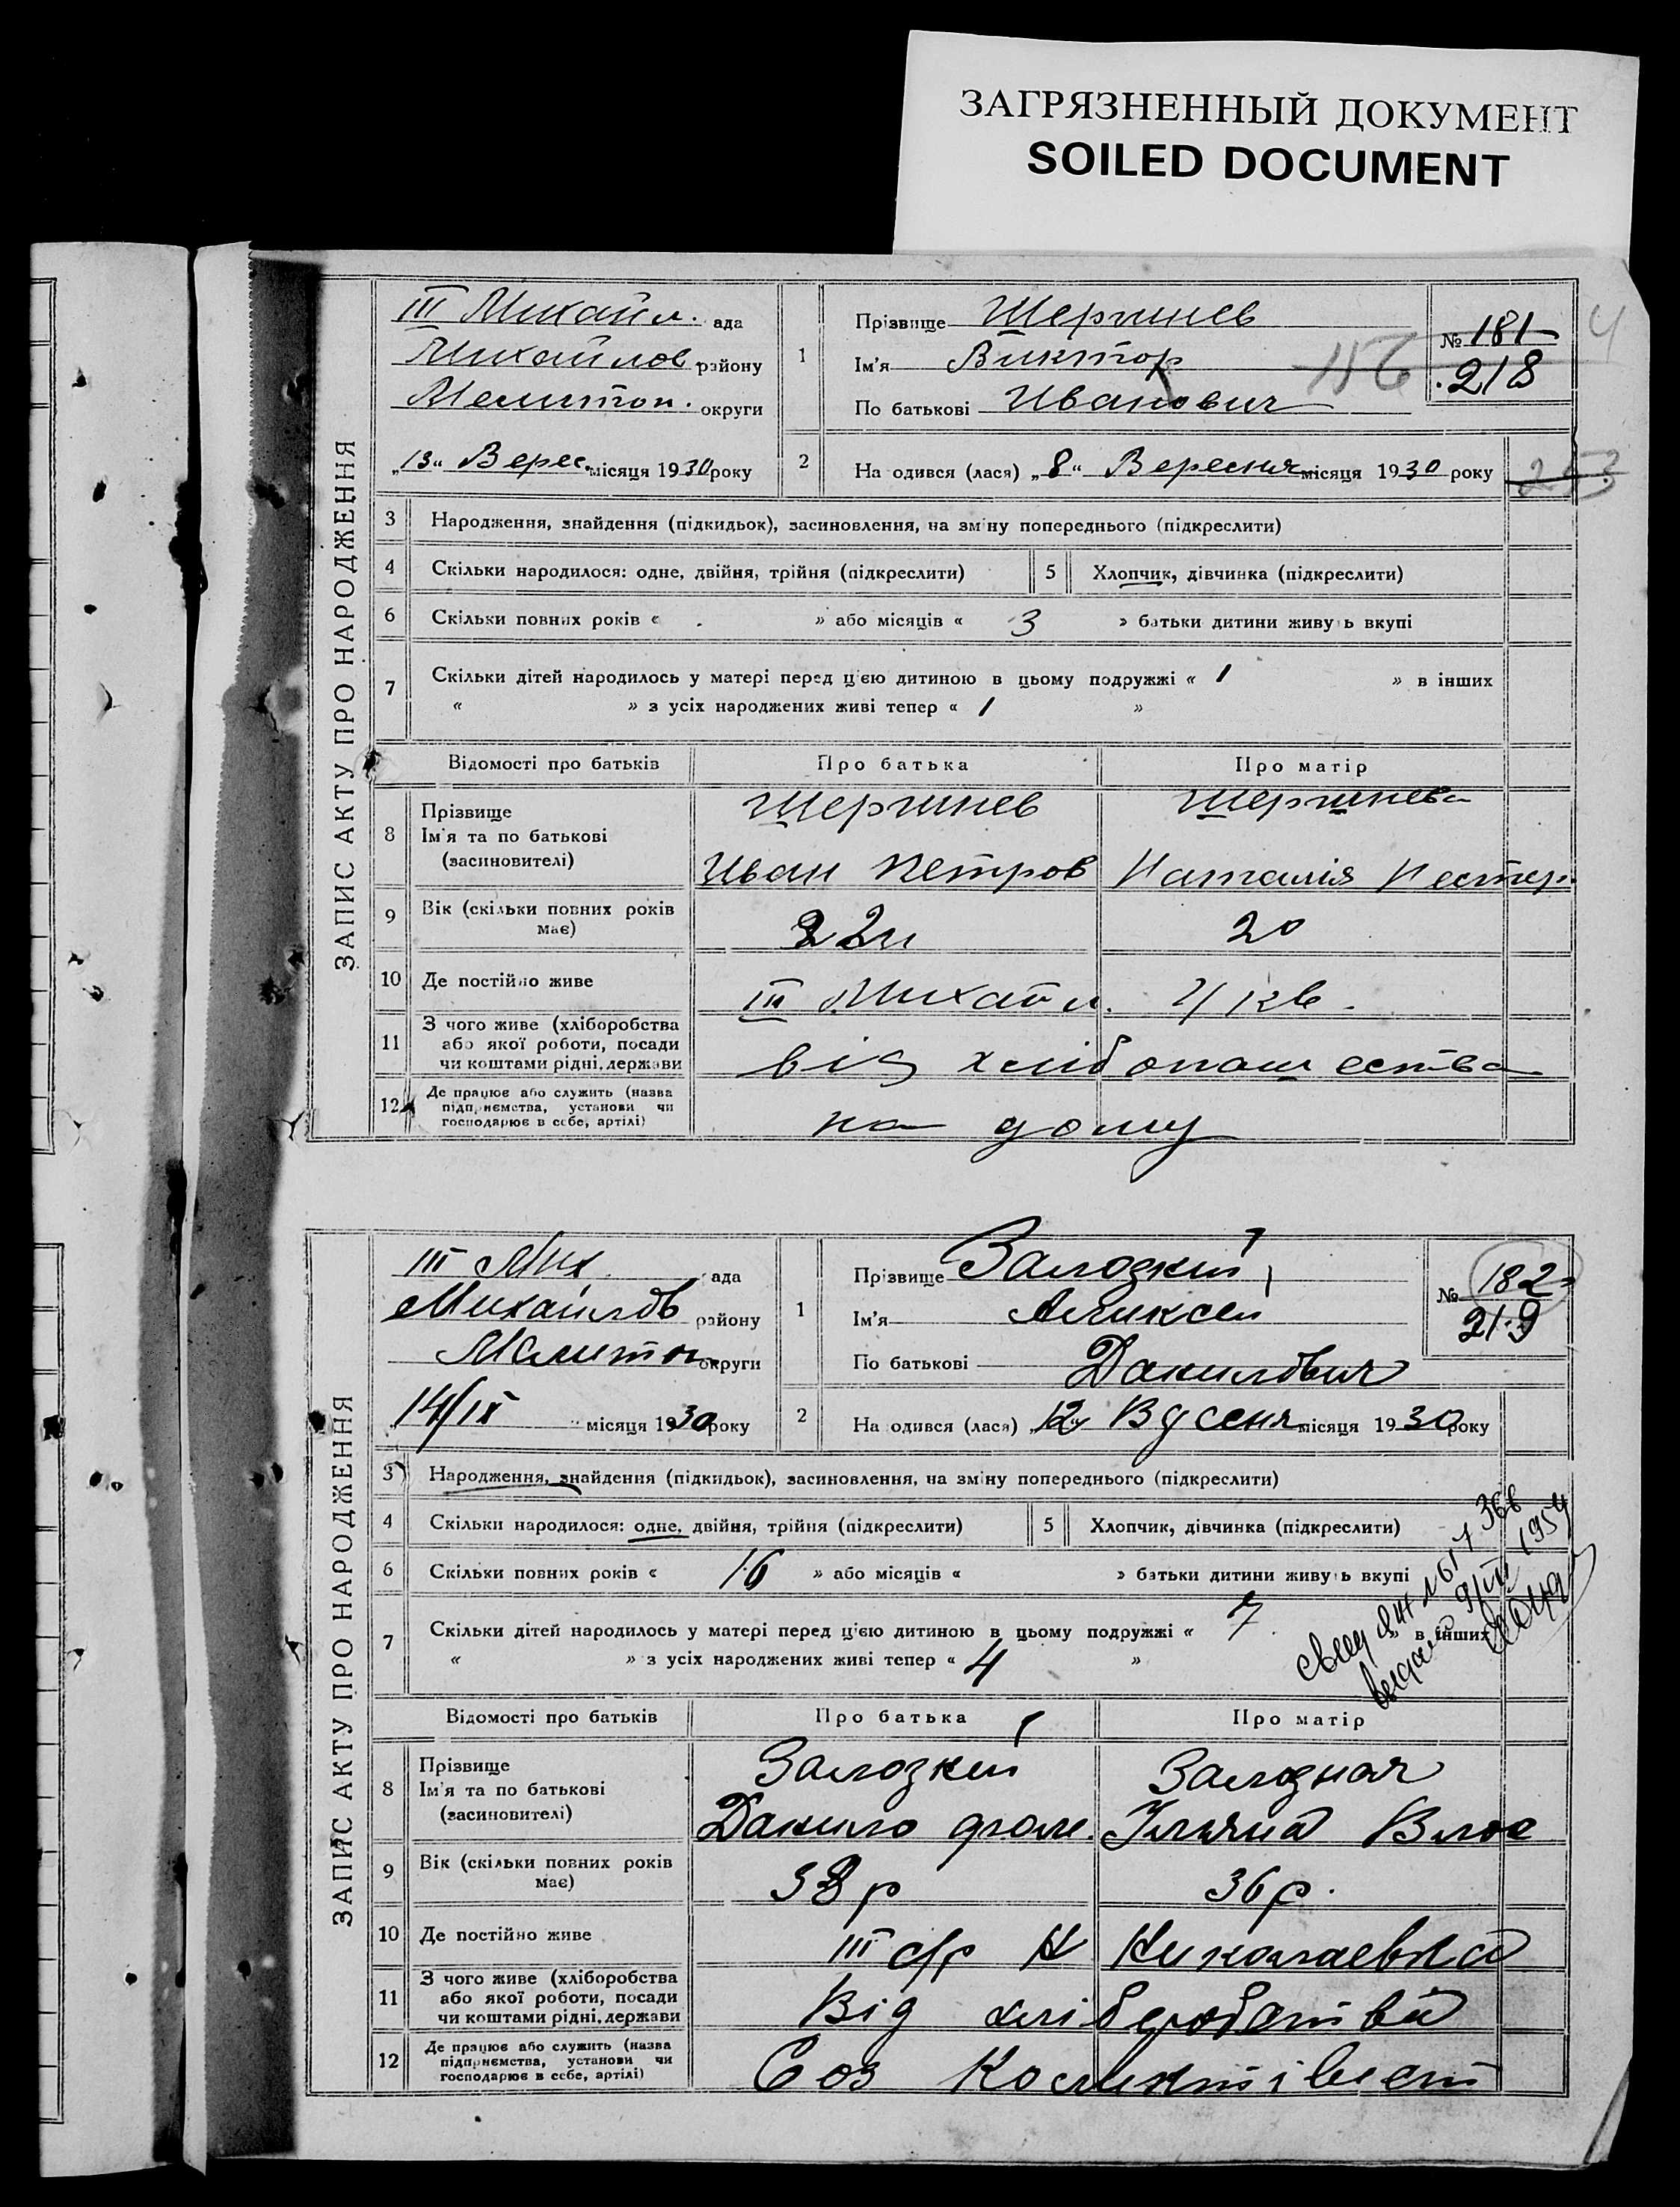 ЗАГРЯЗНЕННЫЙ ДОКУМЕНТ
SOILED DOCUMENT
ЗАПИС АКТУ ПРО НАРОДЖЕННЯ
III Михайл. ада
Михайлов району
Мелитоп. округи
„13“ Верес. місяця 1930 року
1
Прізвище Шершнев
Ім'я Виктор
По батькові Иванович
№ 181
218
116
4
2 На одився (лася) „8“ Вересня місяця 1930 року
253
3 Народження, знайдення (підкидьок), засиновлення, на зміну попереднього (підкреслити)
4 Скільки народилося: одне, двійня, трійня (підкреслити) 5 Хлопчик, дівчинка (підкреслити)
6 Скільки повних років « » або місяців « 3 » батьки дитини живуть вкупі
7 Скільки дітей народилось у матері перед цією дитиною в цьому подружжі « 1 » в інших
« » з усіх народжених живі тепер « 1 »
Відомості про батьків Про батька Про матір
8 Прізвище Шершнев Шершнева
Ім'я та по батькові
(засиновителі) Иван Петров Наталія Нестер.
9 Вік (скільки повних років має) 22 20
10 Де постійно живе III Михайл. 4/кв.
11 З чого живе (хліборобства
або якої роботи, посади
чи коштами рідні, держави від хлібопашества
12 Де працює або служить (назва
підприємства, установи чи
господарює в себе, артілі) на дому
ЗАПИС АКТУ ПРО НАРОДЖЕННЯ
III Мих ада
Михайлов району
Мелитоп округи
14/IX місяця 1930 року
1
Прізвище Залозкий
Ім'я Алексей
По батькові Данилович
№ 182
219
2 На одився (лася) „12“ місяця 1930 року
3 Народження, знайдення (підкидьок), засиновлення, на зміну попереднього (підкреслити)
4 Скільки народилося: одне, двійня, трійня (підкреслити) 5 Хлопчик, дівчинка (підкреслити)
6 Скільки повних років « 16 » або місяців « » батьки дитини живуть вкупі
7 Скільки дітей народилось у матері перед цією дитиною в цьому подружжі « 7 » в інших
« » з усіх народжених живі тепер « 4 »
1954
Відомості про батьків Про батька Про матір
8 Прізвище Залозкий
Ім'я та по батькові
(засиновителі) Данило
9 Вік (скільки повних років має) 38 р 36 р.
10 Де постійно живе III с/р Н Николаевка
11 З чого живе (хліборобства
або якої роботи, посади
чи коштами рідні, держави Від хліборобства
12 Де працює або служить (назва
підприємства, установи чи
господарює в себе, артілі) Соз